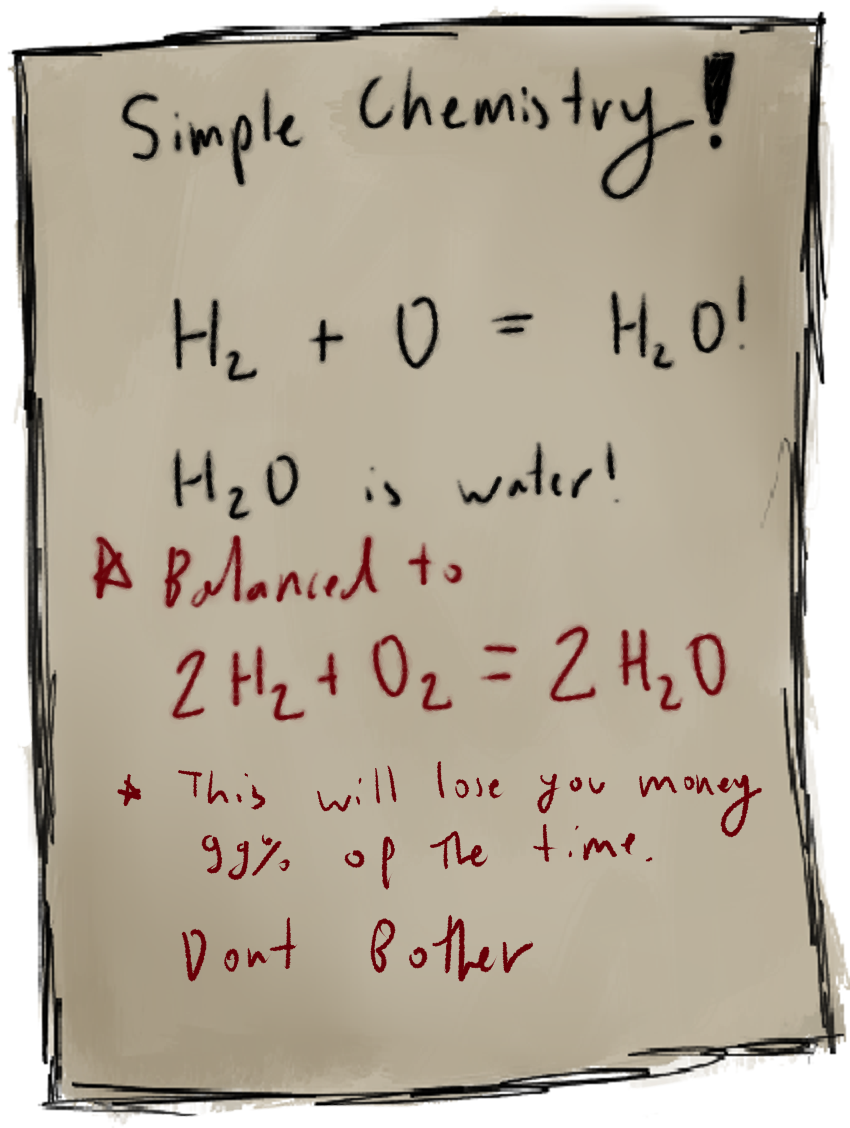 Simple Chemistry!
H₂ + O = H₂O!
H₂O is water!
☆ Balanced to
2H₂ + O₂ = 2H₂O
☆ This will lose you money
99% of the time.
Dont Bother